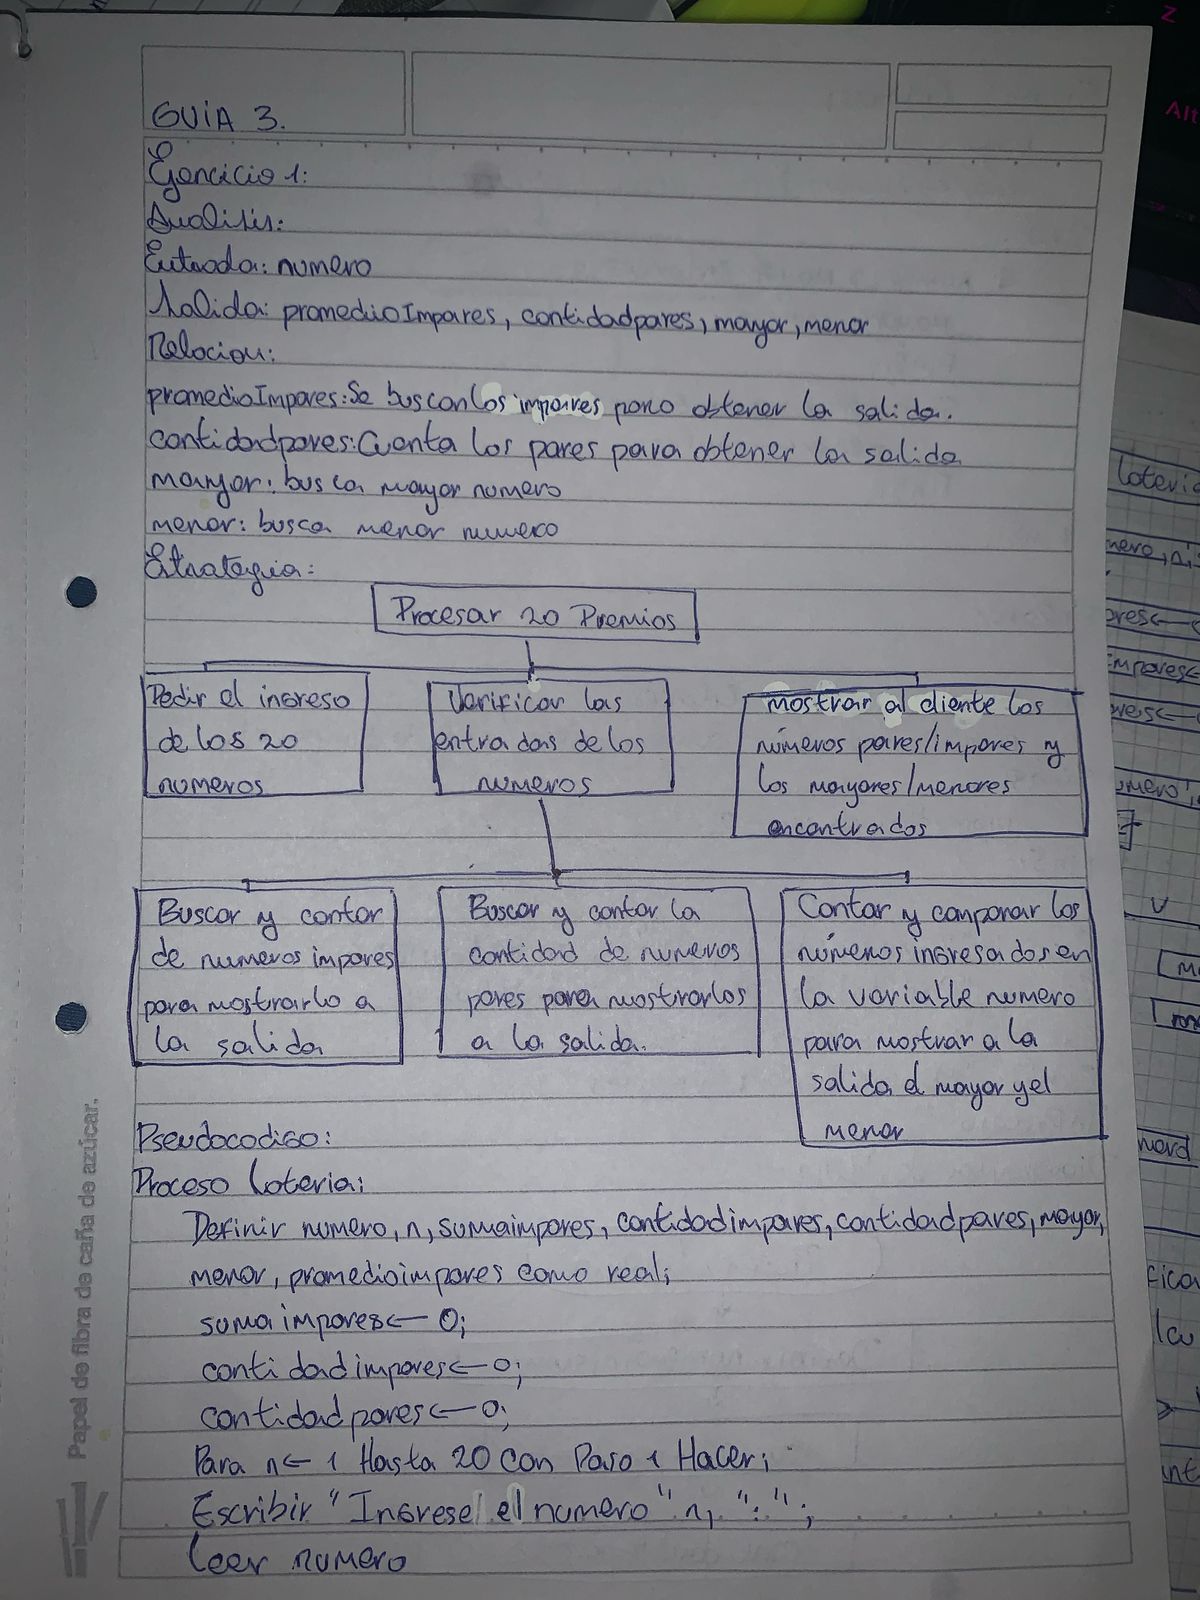 GUIA 3.
Ejercicio 1:
Analisis:
Entrada: numero
Salida: promedioImpares, cantidadpares, mayor, menor
Relacion:
promedioImpares: Se buscan los impares para obtener la salida.
cantidadpares: Cuenta los pares para obtener la salida
mayor: busca mayor numero
menor: busca menor numero
Estrategia:
Procesar 20 Premios
Pedir el ingreso
de los 20
numeros
Verificar las
entradas de los
numeros
mostrar al cliente los
números pares/impares y
los mayores/menores
encontrados
Buscar y contar
de numeros impares
para mostrarlo a
la salida
Buscar y contar la
cantidad de numeros
pares para mostrarlos
a la salida.
Contar y comparar los
números ingresados en
la variable numero
para mostrar a la
salida el mayor y el
menor
Pseudocodigo:
Proceso loteria;
Definir numero, n, sumaimpares, cantidadimpares, cantidadpares, mayor,
menor, promedioimpares como real;
suma impares ← 0;
cantidadimpares ← 0;
cantidadpares ← 0;
Para n ← 1 Hasta 20 Con Paso 1 Hacer;
Escribir "Ingrese el numero" n, ":";
Leer numero
Papel de fibra de caña de azúcar.
loteria
Alt
Z